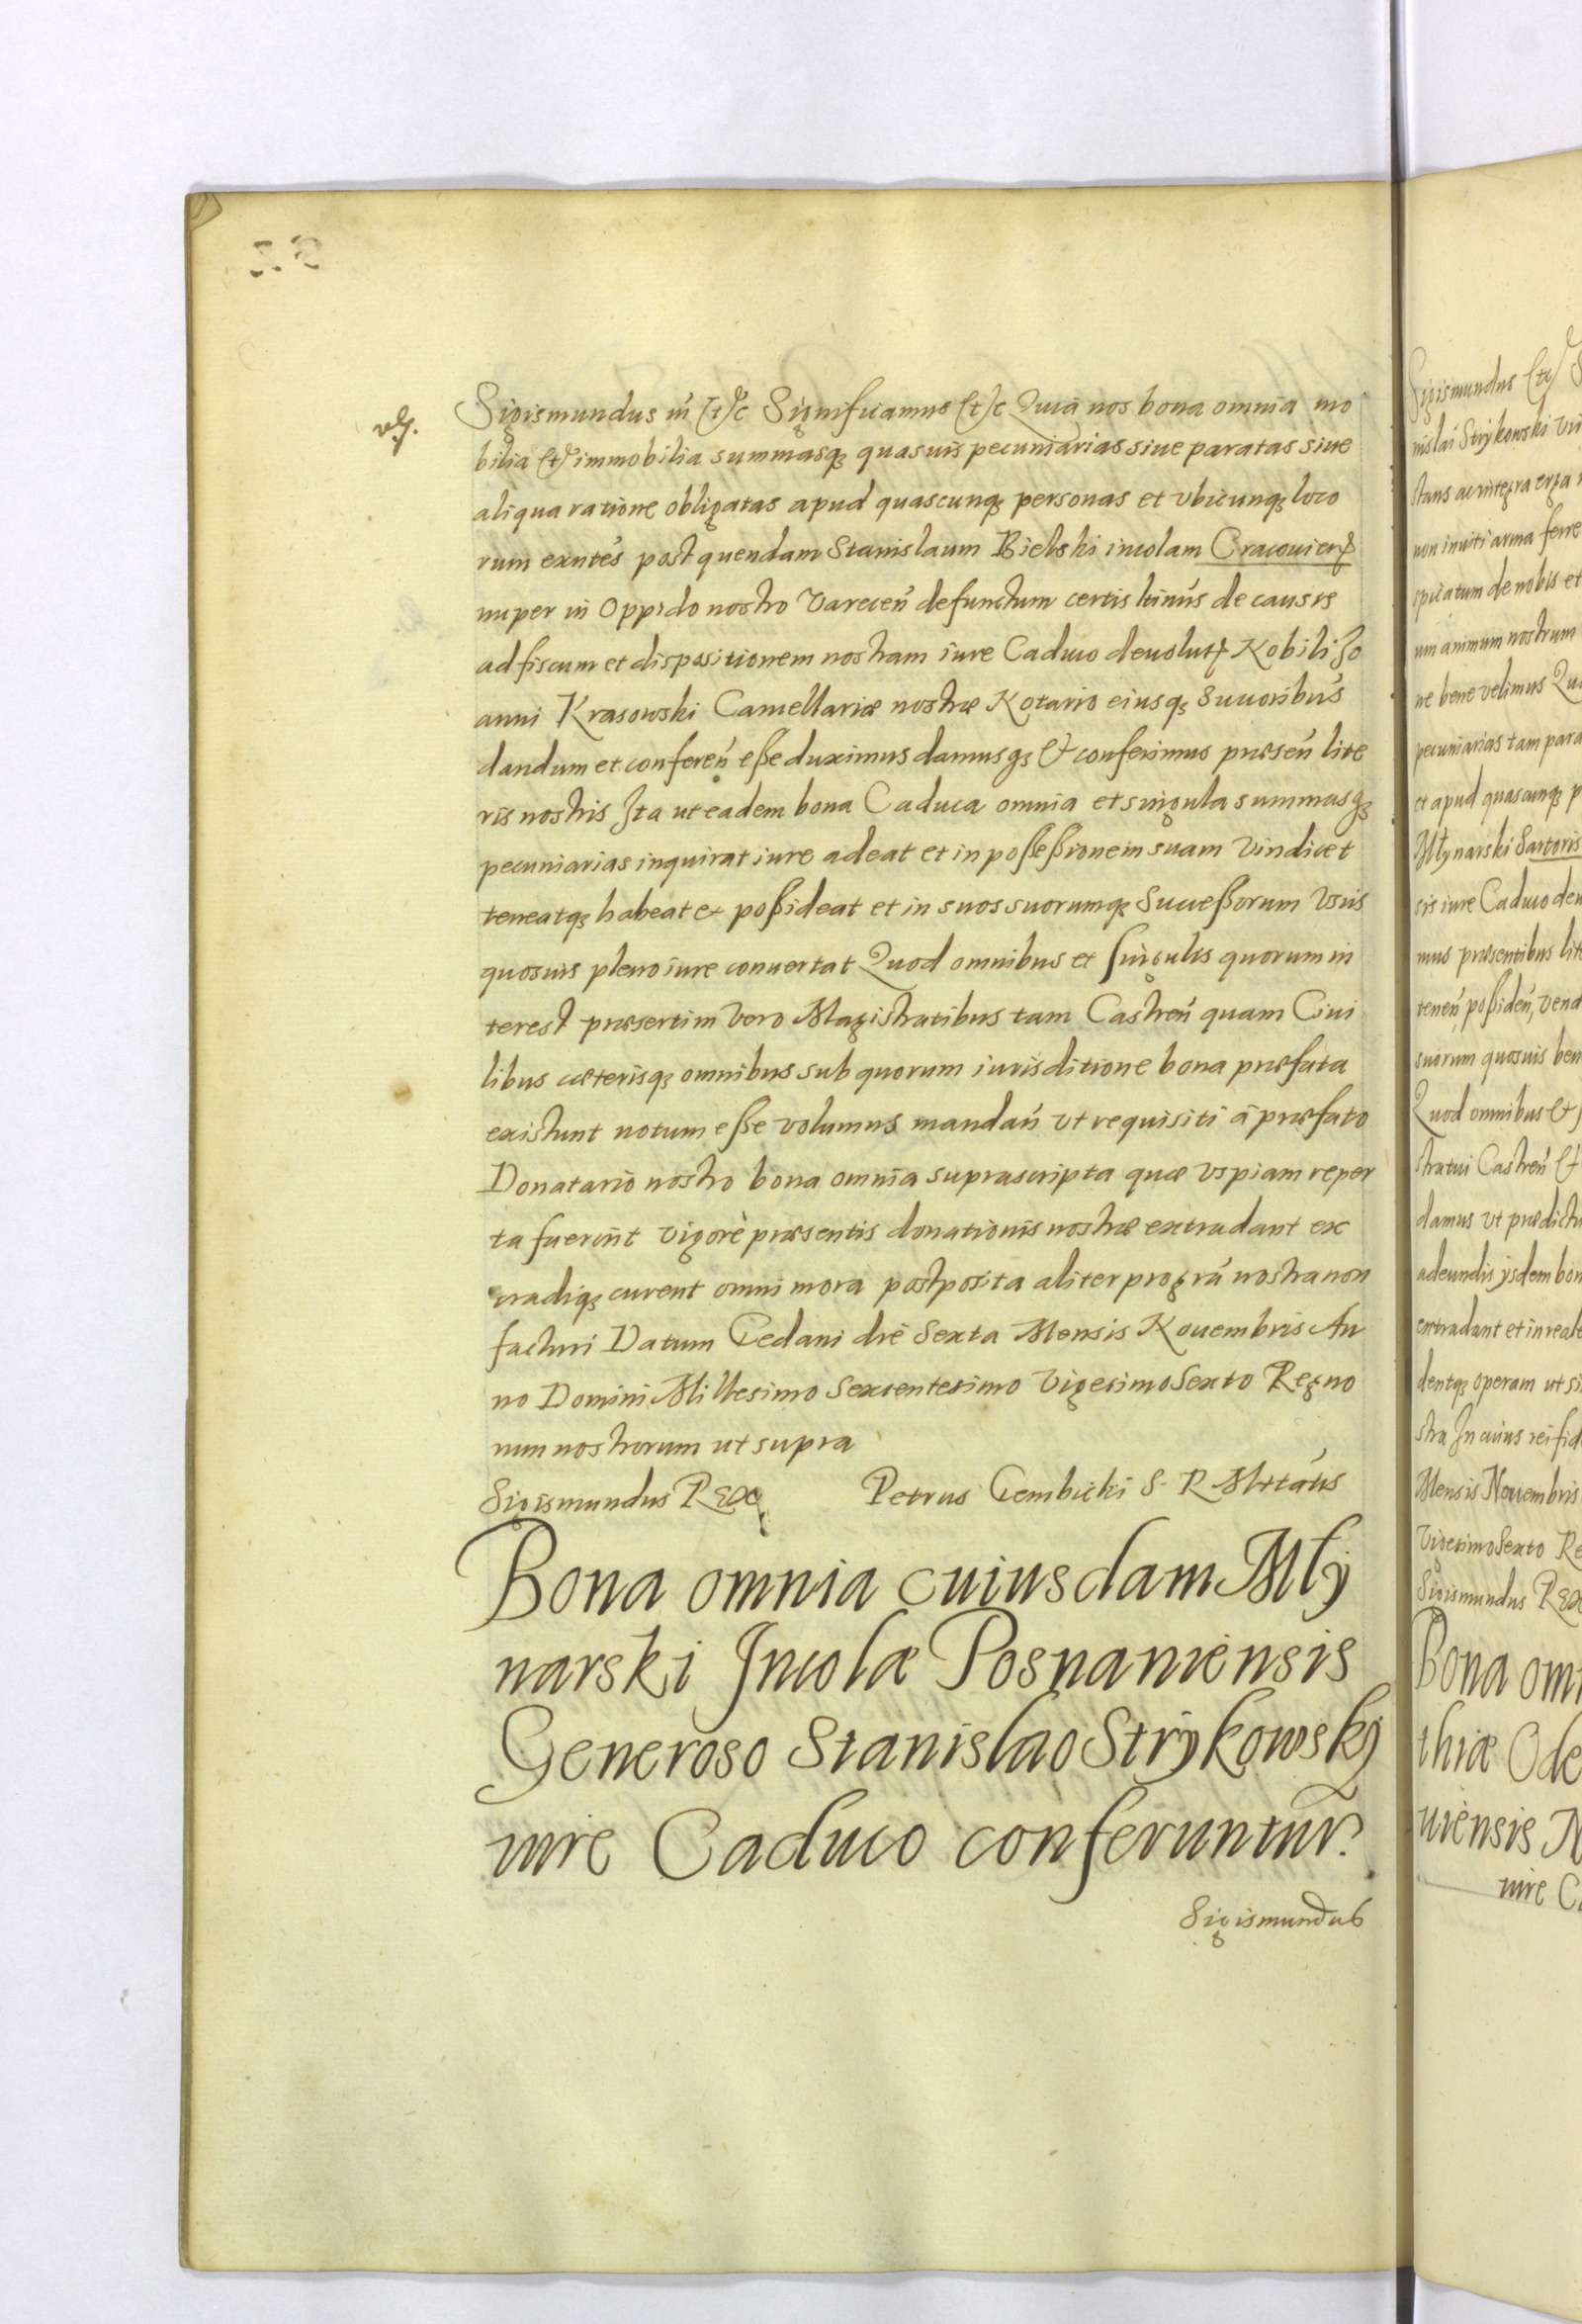 Sigismundus iii (et)c Significamus (et)c Quia nos bona omnia mo
bilia (et) immobilia summasq quasuis pecuniarias siue paratas siue
aliqua ratione obligatas apud quascunq personas et vbicunq loco
rum exntes post quendam Stanislaum Bielski incolam Cracouien
nuper in Oppido nostro Varecen defunctum certis de causis
ad fiscum et dispositionem nostram iure Caduco deuolut Nobili Jo
anni Krasowski Cancellariæ nostræ Notario eiusq Suuoribus
dandum et conferen eße duximus damusq & conferimus præsen lite
ris nostris Jta ut eadem bona Caduca omnia et singula summasq
pecuniarias inquirat iure adeat et in poßeßionem suam Vindicet
teneatq habeat et poßideat et in suos suorumq Succeßorum Vsus
quosuis pleno iure conuertat Quod omnibus et singulis quorum in
terest præsertim Vero Magistratibus tam Castren quam Ciui
libus cæterisq omnibus sub quorum iurisditione bona præfata
existunt notum eße volumus mandan Vt requisiti á præfato
Donatario nostro bona omnia suprascripta quæ Vspiam reper
ta fuerint vigore præsentis donationis nostræ extradant ex
tradiq curent omni mora postposita aliter pro gra nostra non
facturi Datum Gedani die Sexta Mensis Nouembris An
no Domini Millesimo Sexcentesimo Vigesimo Sexto Regno
rum nostrorum ut supra
Sigismundus Rex Petrus Gembicki S. R. Mttatis
Bona omnia cuiusdam Mły
narski Jncolæ Posnaniensis
Generoso Stanislao Strykowsky
iure Caduco conferuntur.
Sigismundus
Sigismundus (et)
nislai Strykowski
stans ac integra erga
non inuiti arma ferre
spicatum de nobis et
um animum nostrum
ne bene velimus
pecuniarias tam para
et apud quascunq p
Młynarski Sartoris
sis iure Caduco deu
mus præsentibus lite
tenen, poßiden, vend
suorum quosuis ben
Quod omnibus &
stratui Castren &
damus vt prædictu
adeundis ysdem bon
extradant et in reale
dentq operam ut si
stra Jn cuius rei fid
Mensis Nouembris
Vigesimo Sexto Re
Sigismundus Rex
Bona omn
thiæ Ode
uiensis N
iure Ca